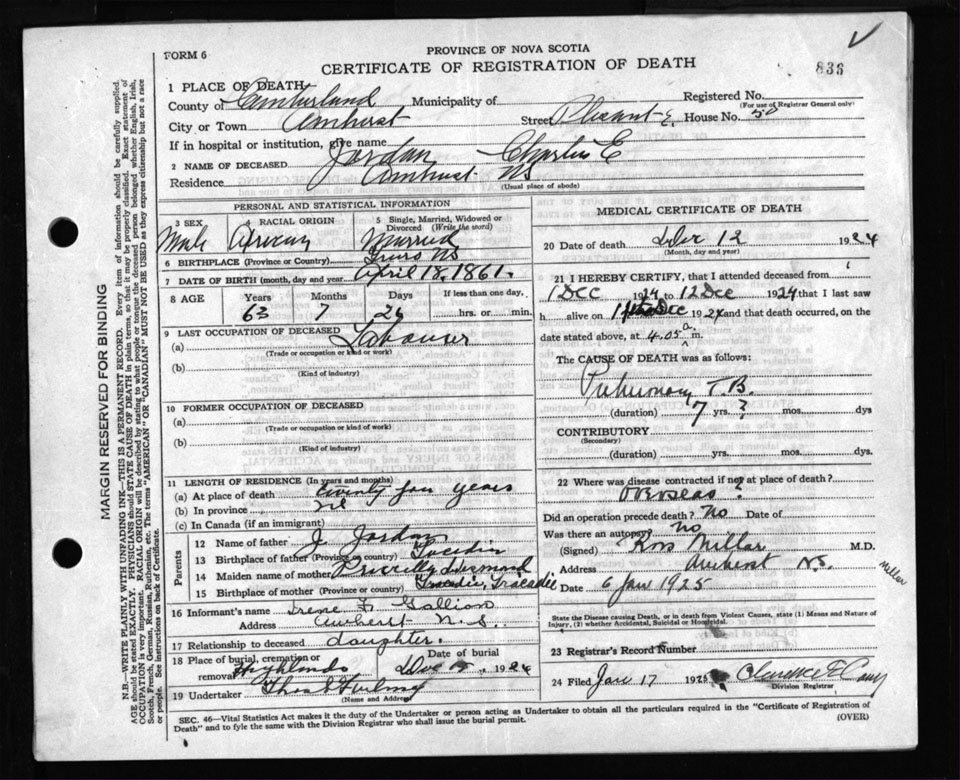 PROVINCE OF NOVA SCOTIA
FORM 6
CERTIFICATE OF REGISTRATION OF DEATH
836
1 PLACE OF DEATH
County of Cumberland Municipality of Registered No.
(For use of Registrar General only)
City or Town Amherst Street Pleasant E. House No. 50
If in hospital or institution, give name
2 NAME OF DECEASED Jordan Charles E
Residence Amherst NS
(Usual place of abode)
PERSONAL AND STATISTICAL INFORMATION
3 SEX 4 RACIAL ORIGIN 5 Single, Married, Widowed or Divorced (Write the word)
Male African Married
6 BIRTHPLACE (Province or Country) Truro NS
7 DATE OF BIRTH (month, day and year) April 18, 1861.
8 AGE Years Months Days If less than one day,
63 7 26 hrs. or min.
9 LAST OCCUPATION OF DECEASED
(a) Labourer
(Trade or occupation or kind or work)
(b)
(Kind of industry)
10 FORMER OCCUPATION OF DECEASED
(a)
(Trade or occupation or kind or work)
(b)
(Kind of industry)
11 LENGTH OF RESIDENCE (In years and months)
(a) At place of death twenty four years
(b) In province
(c) In Canada (if an immigrant)
Parents
12 Name of father J. Jordan
13 Birthplace of father (Province or country)
14 Maiden name of mother
15 Birthplace of mother (Province or country) Tracadie, Tracadie
16 Informant's name Irene F. Gallion
Address Amherst N.S.
17 Relationship to deceased daughter.
18 Place of burial, cremation or removal Highlands
Date of burial Dec 1924
19 Undertaker
(Name and Address)
MEDICAL CERTIFICATE OF DEATH
20 Date of death Dec 12 1924
(Month, day and year)
21 I HEREBY CERTIFY, that I attended deceased from
1 Dec 1924 to 12 Dec 1924 that I last saw
h alive on Dec 1924 and that death occurred, on
date stated above, at 4.05 a. m.
The CAUSE OF DEATH was as follows:
Pulmonary T.B.
(duration) 7 yrs. ? mos. dys
CONTRIBUTORY
(Secondary)
(duration) yrs. mos. dys.
22 Where was disease contracted if not at place of death?
Overseas ?
Did an operation precede death? No Date of
Was there an autopsy? No
(Signed) Ross Millar M.D.
Address Amherst N.S.
Millar
Date 6 Jan 1925
State the Disease causing Death, or in death from Violent Causes, state (1) Means and Nature of Injury, (2) whether Accidental, Suicidal or Homicidal.
23 Registrar's Record Number
24 Filed Jan 17 1925
Division Registrar
SEC. 46—Vital Statistics Act makes it the duty of the Undertaker or person acting as Undertaker to obtain all the particulars required in the "Certificate of Registration of
Death" and to fyle the same with the Division Registrar who shall issue the burial permit. (OVER)
MARGIN RESERVED FOR BINDING
N.B.—WRITE PLAINLY WITH UNFADING INK—THIS IS A PERMANENT RECORD. Every item of information should be carefully supplied.
AGE should be stated EXACTLY. PHYSICIANS should STATE CAUSE OF DEATH in plain terms, so that it may be properly classified. Exact statement of
OCCUPATION is very important. RACIAL ORIGIN will be described by stating to what people or tongue the deceased person belonged whether English, Irish,
Scotch, French, German, Russian, Ruthenian, etc. The terms "AMERICAN" OR "CANADIAN" MUST NOT BE USED as they express citizenship but not a race
or people. See instructions on back of Certificate.